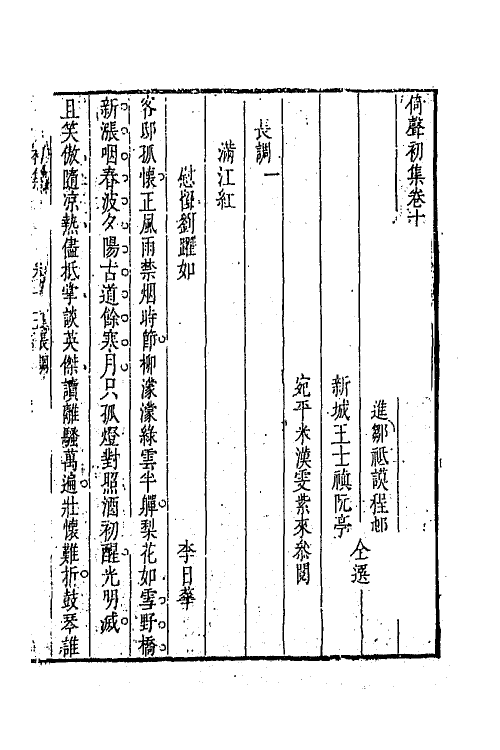 倚聲初集卷十
進鄒祗謨程邨
仝選
新城王士禛阮亭
宛平米漢雯紫來叅閱
長調一
滿江紅
慰留劉躍如
李日華
客邸孤懷正風雨禁烟時節柳濛濛綠雲半嚲梨花如雪野橋
新漲咽春波夕陽古道餘寒月只孤燈對照酒初醒光明滅
且笑傲隨凉熱儘抵掌談英傑讀離騷萬遍壯懷難折鼓琴誰
長調